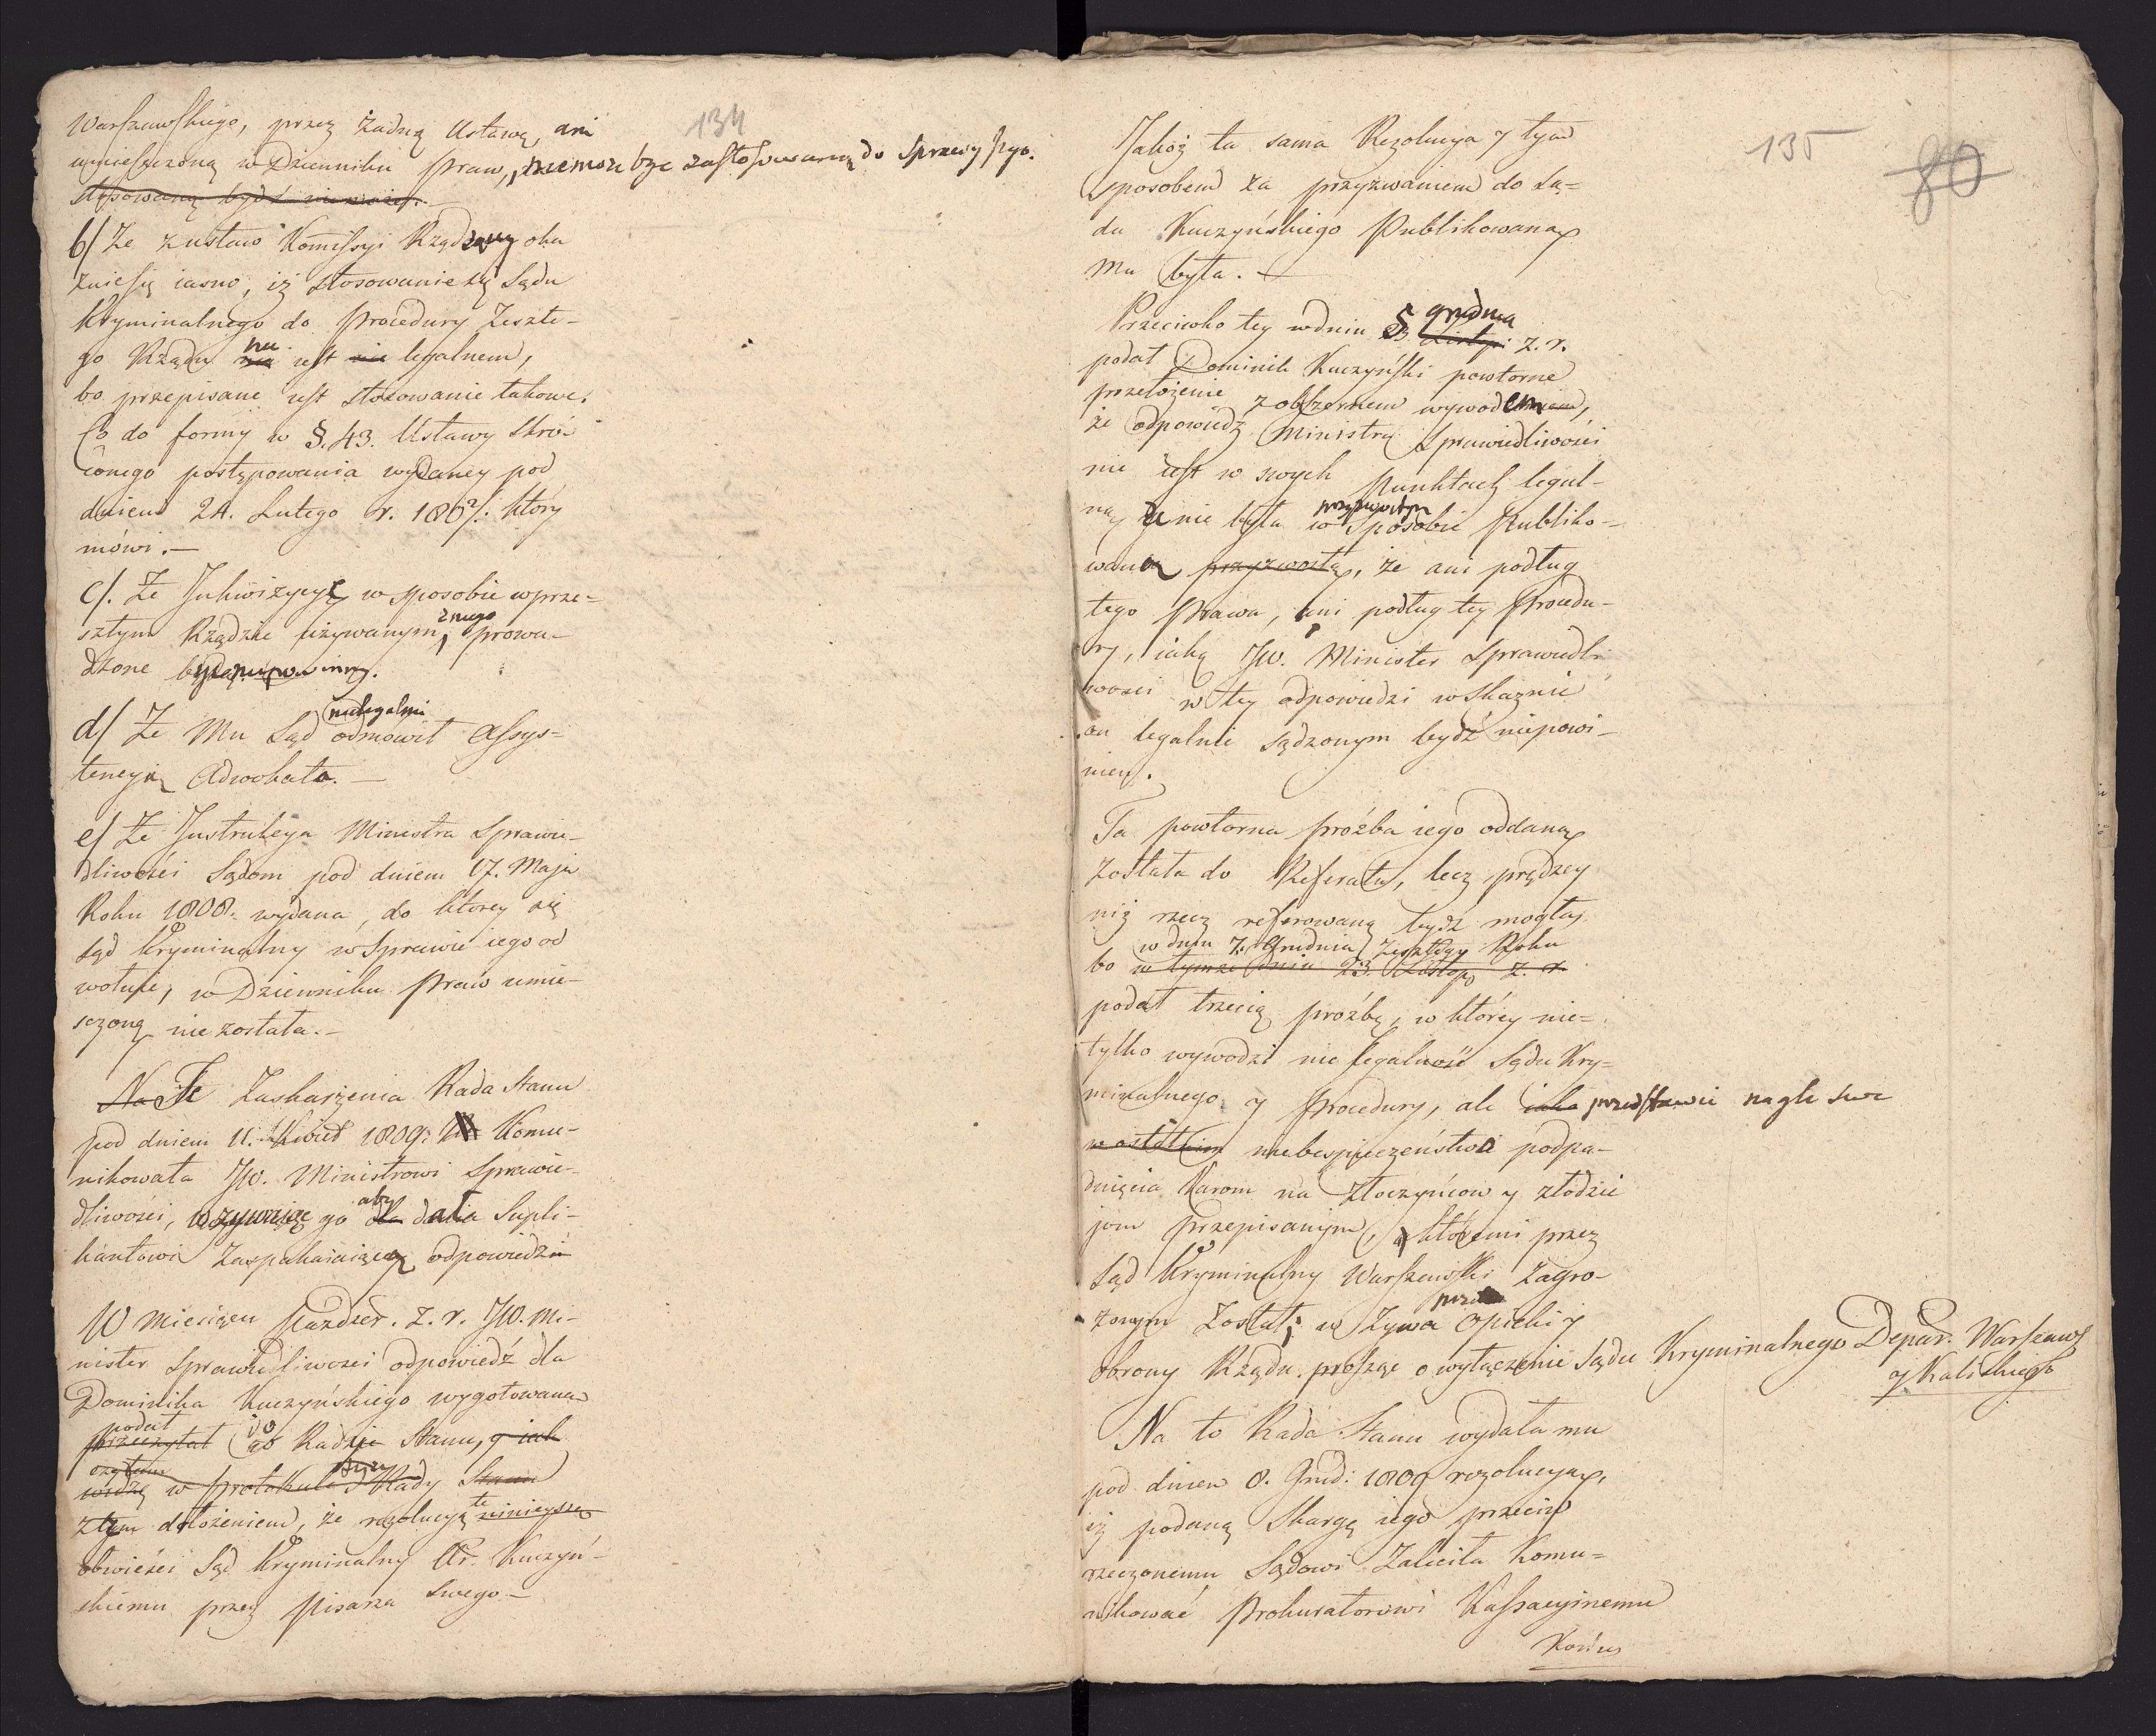 134
Warszawskiego, przez żadną Ustawę, ani
umieszczoną w Dzienniku Praw, niemoże bydź zastosowaną do Sprawy
stosowaną bydź nie może.—
b/ Że z ustaw Komissyi Rządzący oka
zuie się iasno, iż stosowanie się Sądu
Kryminalnego do Procedury Zeszłe-
go Rządu nie iest legalnem,
bo przepisane iest stosowanie takowe.
Co do formy w §. 43. Ustawy Skró-
conego postępowania wydaney pod
dniem 24. Lutego r. 1807. który
mówi.—
c/. Że Inkwizycye w sposobie w prze-
szłym Rządzie używanym, z niego prowa-
dzone
d/ Że Mu Sąd nielegalnie odmówił Assys-
tencyą Adwokata.—
e/ Że Instrukcya Ministra Sprawie-
dliwości Sądom pod dniem 17. Maja
Roku 1808. wydana, do którey się
Sąd Kryminalny w Sprawie iego od
wołuie, w Dzienniku Praw umie-
sczoną nie została.—
Na Te Zaskarżenia Rada Stanu
pod dniem 11. Kwiet 1809. Komu-
nikowała JW. Ministrowi Sprawie-
dliwości, wzywaiąc go aby dał Supli-
kantowi Zaspakaiaiącą odpowiedź
W Miesiącu Paźdźier. z. r. JW. Mi-
nister Sprawiedliwości odpowiedź dla
Dominika Kuczyńskiego wygotowaną
podał do
przeczytał w Radzie Stanu, y iak
czytam
widzę w Protokule Rady Stanu
z tym dołożeniem, że rezolucyą tę ninieyszą
obwieści Sąd Kryminalny Ur. Kuczyń-
skiemu przez Pisarza Swego—
135
80
Jakoż ta sama Rezolucya y tym
sposobem za przyzwaniem do Są-
du Kuczyńskiego Publikowaną
mu była.—
Przeciwko tey w dniu 5 grudnia 23 Listop: z. r.
podał Dominik Kuczyński powtorne
przełożenie z obszernem wywodem,
że odpowiedź Ministra Sprawiedliwości
nie iest w swych Punktach legal-
ną, że nie była w przyzwoitym Sposobie Publiko-
waną przyzwoitą, że ani podług
tego Prawa, ani podług tey Procedu-
ry, iaką JW. Minister Sprawiedli
wości w tey odpowiedzi wskazuie
on legalnie sądzonym bydź niepowi-
nien.
Ta powtorna proźba iego oddaną
została do Referatu, lecz prędzey
niż rzecz referowaną bydź mogła,
w dniu 7. Grudnia Zeszłego Roku
bo w tymże dniu 23. Listop. z. r.
podał trzecią proźbę, w którey nie-
tylko wywodzi nie legalność Sądu Kry-
minalnego y Procedury, ale iako przedstawie nagłe swe
w ostatnim niebezpieczeństwo podpa-
dnięcia Karom na Złoczyńcow y złodzie
jom Przepisanym, któremi przez
Sąd Kryminalny Warszawski Zagro-
żonym został; wzywa Opieki y
obrony Rządu. prosząc o wyłączenie Sądu Kryminalnego Depar. Warszaws
y Kaliskiego
Na to Rada Stanu wydała mu
pod dniem 8. Grud: 1809 rezolucyą,
iż podaną Skargę iego przeciw
rzeczonemu Sądowi Zaleciła Komu-
nikować Prokuratorowi Kassacyinemu